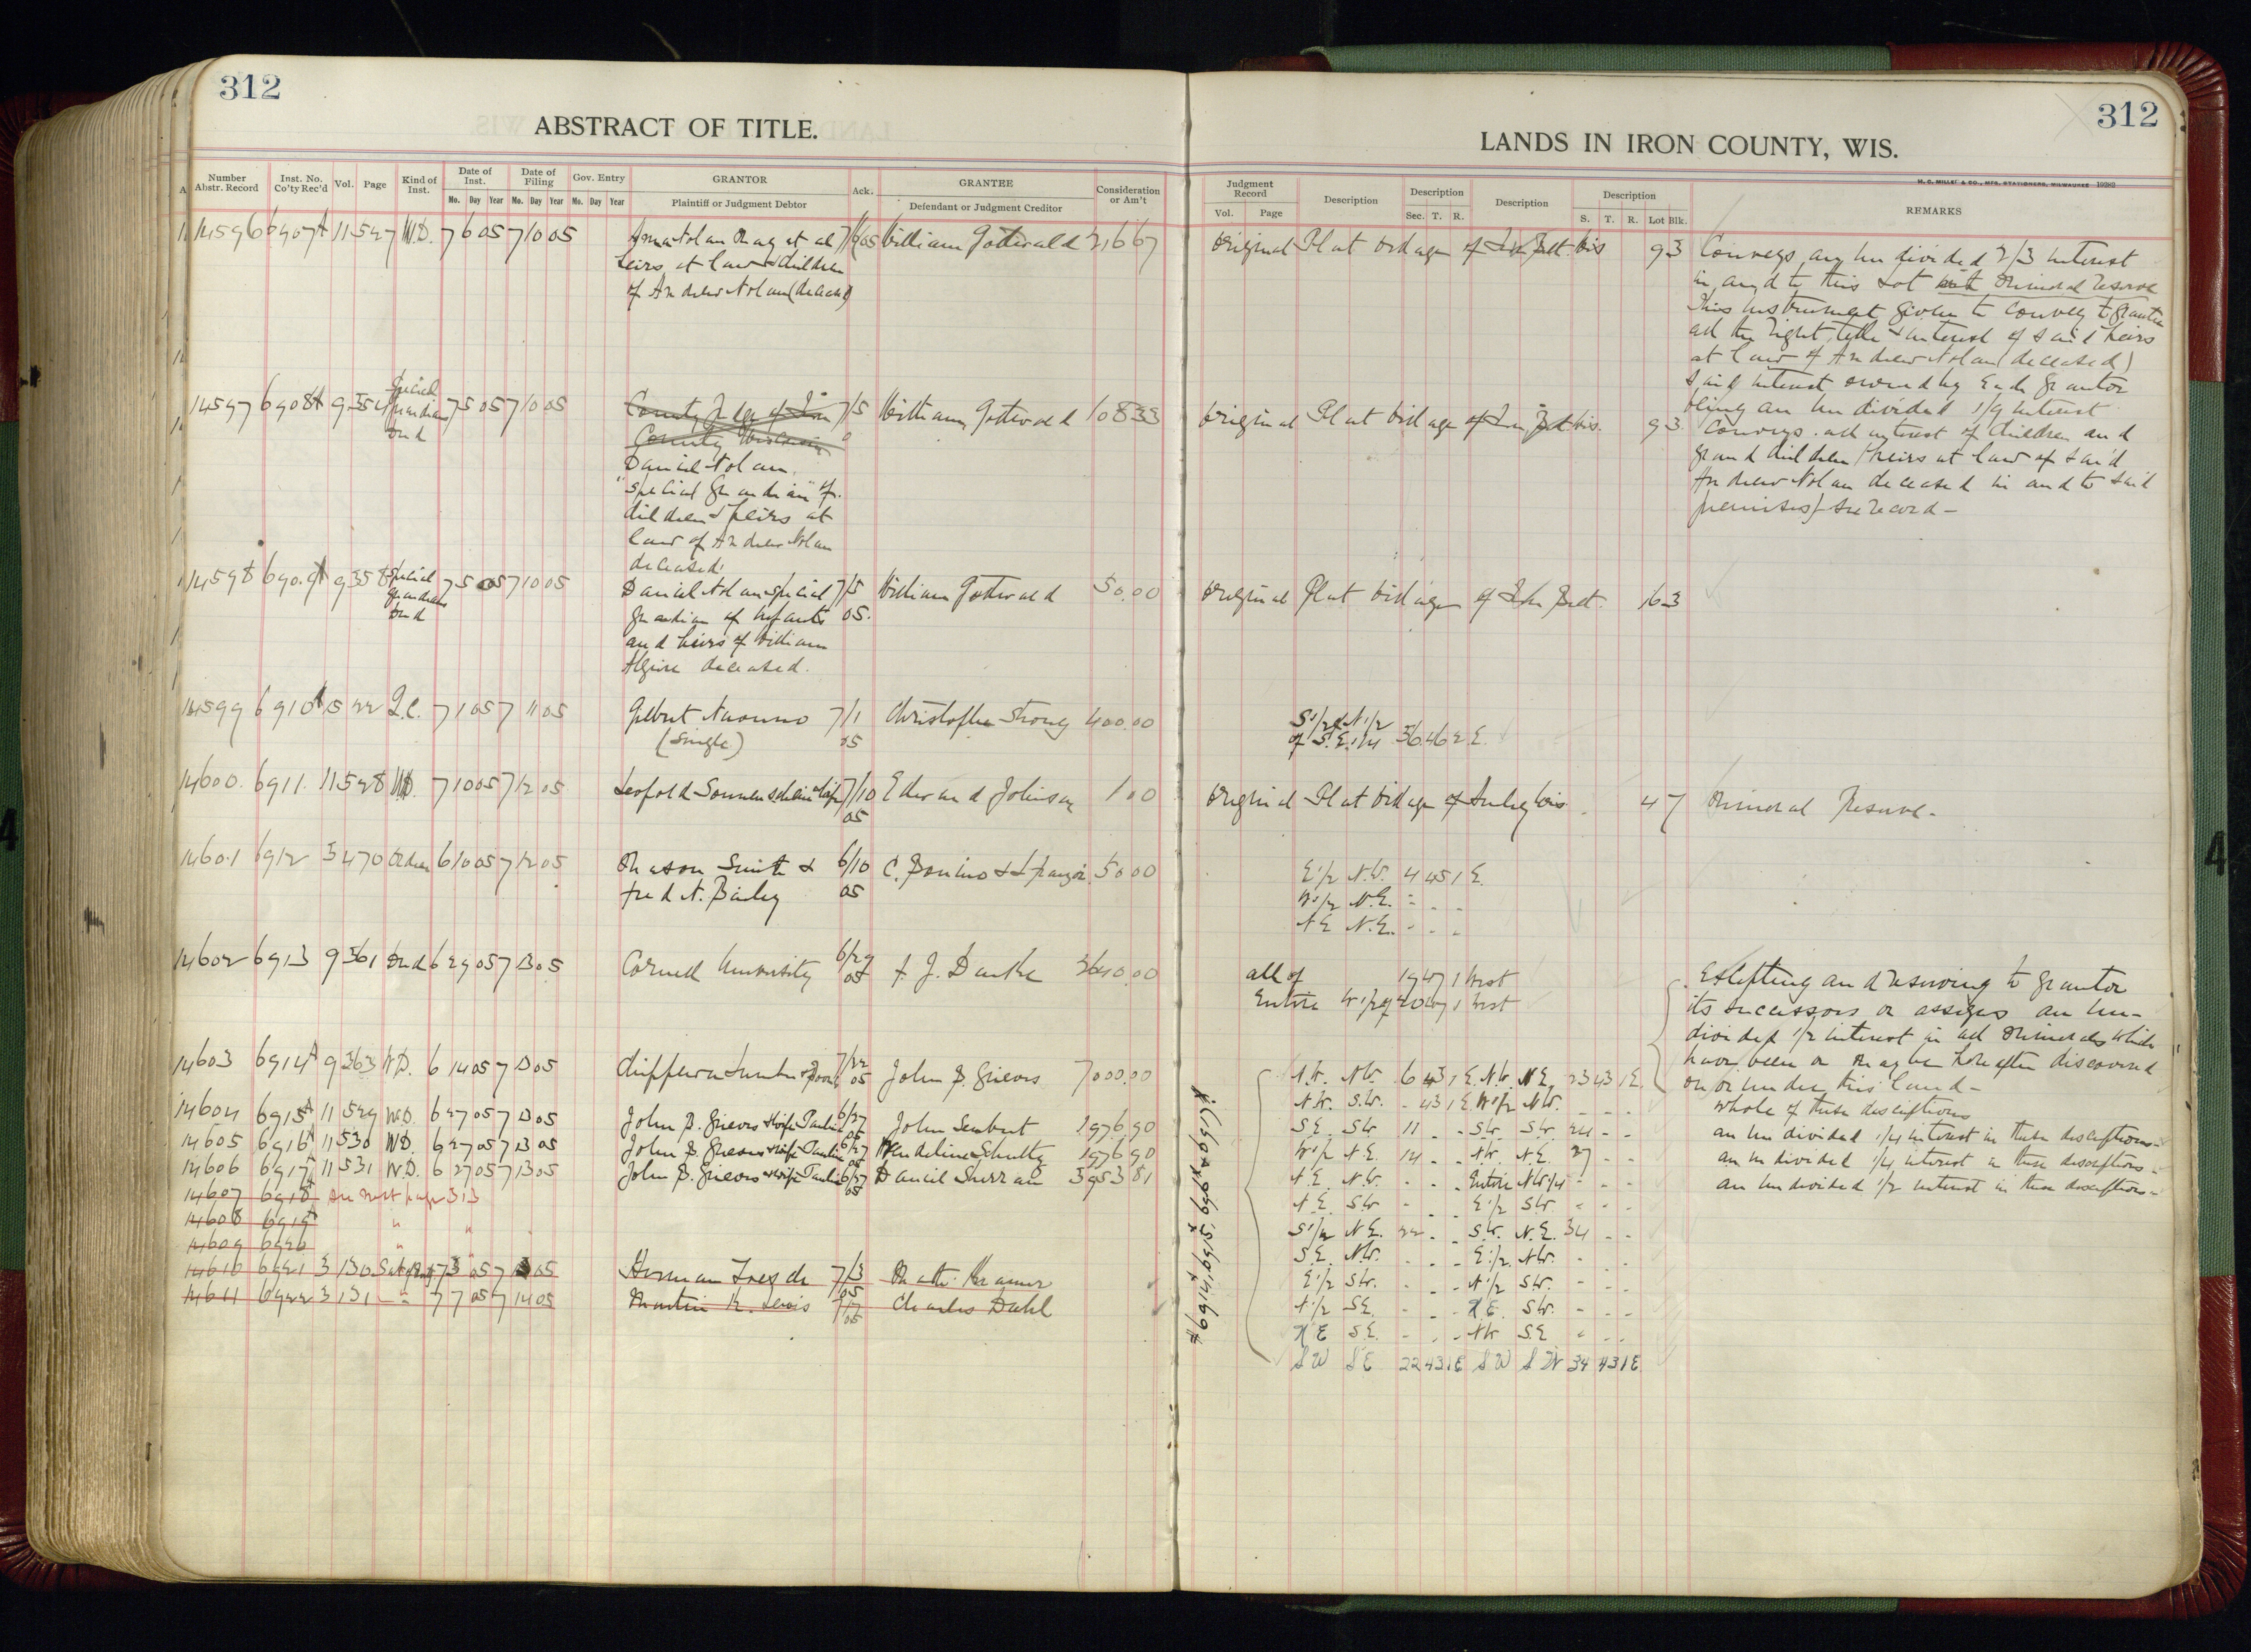 312
312
ABSTRACT OF TITLE.
LANDS IN IRON COUNTY, WIS.
H. C. MILLER & CO., MFG. STATIONERS, MILWAUKEE 19282
Number Abstr. Record
Inst. No. Co'ty Rec'd
Vol.
Page
Kind of Inst.
Date of Inst.
Mo. Day Year
Date of Filing
Mo. Day Year
Gov. Entry
Mo. Day Year
GRANTOR
Plaintiff or Judgment Debtor
Ack.
GRANTEE
Defendant or Judgment Creditor
Consideration or Am't
Judgment Record
Vol. Page
Description
Description
Sec. T. R.
Description
Description
S. T. R. Lot Blk.
REMARKS
14596 6907A 11 527 W.D. 7 6 05 7 10 05
et al 7/6 05 William Gottwald 21667
heirs at law & children
of Andrew Nolan (deceased)
Original Plat Village of Iron Belt. Wis 9 3
Conveys an undivided 2/3 interest
in and to this Lot mineral reserve
This instrument given to convey to grantee
all the right, title & interest of said heirs
at law of Andrew Nolan (deceased)
said interest owned by each grantor
being an undivided 1/9 interest
14597 6908A 9 354 Special Guardian Deed 7 5 05 7 10 05
County Judge of Iron 7/5 William Gottwald 108 33
County Wisconsin
Daniel Nolan
"special Guardian" of
children & heirs at
law of Andrew Nolan
deceased.
Original Plat Village of Iron Belt Wis. 9 3
Conveys all interest of children and
grand children (heirs at law of said
Andrew Nolan deceased in and to said
premises) - see record -
14598 6909A 9 358 Special Guardians Deed 7 5 05 7 10 05
Daniel Nolan special 7/5 William Gottwald 50.00
guardian of infants 05.
and heirs of William
deceased.
Original Plat Village of Iron Belt. 16 3
14599 6910A 15 22 Q.C. 7 1 05 7 11 05
Gilbert 7/1 Christopher Strong 400.00
(Single) 05
S 1/2 of N 1/2
of S.E. 1/4 36 46 2 E.
14600. 6911. 11 528 W.D. 7 10 05 7 12 05
Leopold Sonnenschein & wife 7/10 Edward Johnson 1.00
05
Original Plat Village of Hurley Wis. 4 7 Mineral Reserve.
14601 6912 3 470 6 10 05 7 12 05
Mason Smith & 6/10 C. Bonino & 50 00
Fred N. Bailey 05
E 1/2 N.W. 4 45 1 E.
W 1/2 N.E. - - -
N E N.E. - - -
14602 6913 9 361 Deed 6 29 05 7 13 05
Cornell University 6/29 05 3640.00
all of 19 47 1 West
Entire W 1/2 of 20 47 1 West
Excepting and reserving to grantor
its successors or assigns an un-
divided 1/2 interest in all minerals which
have been or may be hereafter discovered
on or under this land -
14603 6914A 9 363 W.D. 6 14 05 7 13 05
Chippewa Lumber & Boom 7/22 05 John P. Grieves 7000.00
whole of these descriptions
14604 6915A 11 529 W.D. 6 27 05 7 13 05
John P. Grieves & wife Pauline 6/27 05 John 1976 90
an undivided 1/4 interest in these descriptions
14605 6916A 11 530 W.D. 6 27 05 7 13 05
John P. Grieves & wife Pauline 6/27 05 Wendeline Schultz 1976 90
an undivided 1/4 interest in these descriptions
14606 6917A 11 531 W.D. 6 27 05 7 13 05
John P. Grieves & wife Pauline 6/27 05 Daniel 3953 81
an undivided 1/2 interest in these descriptions
14607 6918A see next page 313
14608 6919A " "
14609 6920 " "
14610 6921 3 130 7 3 05 7 13 05
Herman 7/3 05
14611 6922 3 131 - " 7 7 05 7 14 05
Martin K. Lewis 7/7 05 Charles Dahl
#6914, 6915, 6916, 6917
N.W. N.W. 6 43 1 E. N.W. N.E. 23 43 1 E.
N.W. S.W. - 43 1 E. W 1/2 N.W. - - -
S E. S.W. 11 - - S.W. S.W. 24 - -
W 1/2 N.E. 14 - - N.W. N.E. 27 - -
N.E. N.W. - - - Entire N.W. 1/4 - - -
N.E. S.W. - - - E 1/2 S.W. - - -
S 1/2 N.E. 22 - - S.W. N.E. 34 - -
S.E. N.W. - - - E 1/2 N.W. - - -
E 1/2 S.W. - - - N 1/2 S.W. - - -
N 1/2 S.E. - - - N.E. S.W. - - -
N E S.E. - - - N.W. S.E. - - -
S W S E 22 43 1 E S W S W 34 43 1 E.